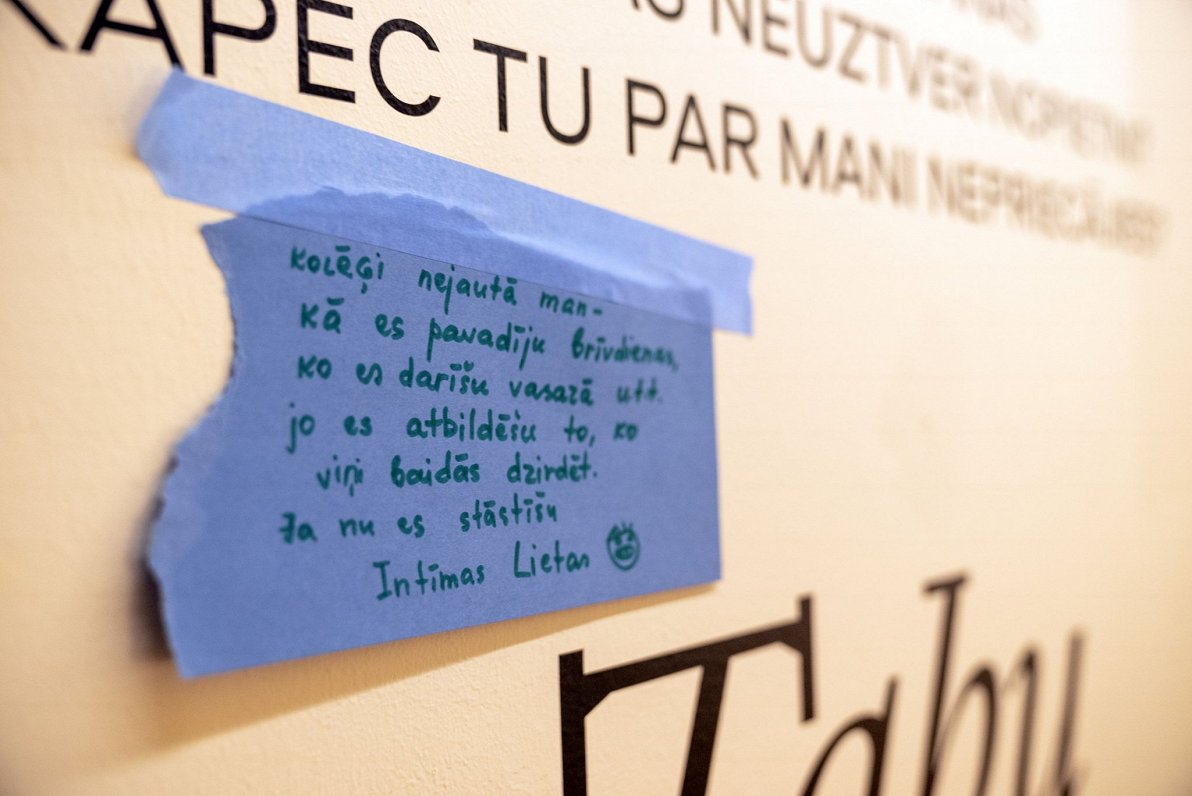 NEUZTVER NOPIETNI
KĀPĒC TU PAR MANI NEPRIECĀJIES?
kolēģi nejautā man-
kā es pavadīju brīvdienas,
ko es darīšu vasarā utt.
jo es atbildēšu to, ko
viņi baidās dzirdēt.
Ja nu es stāstīšu
Intīmas Lietas
Tabu